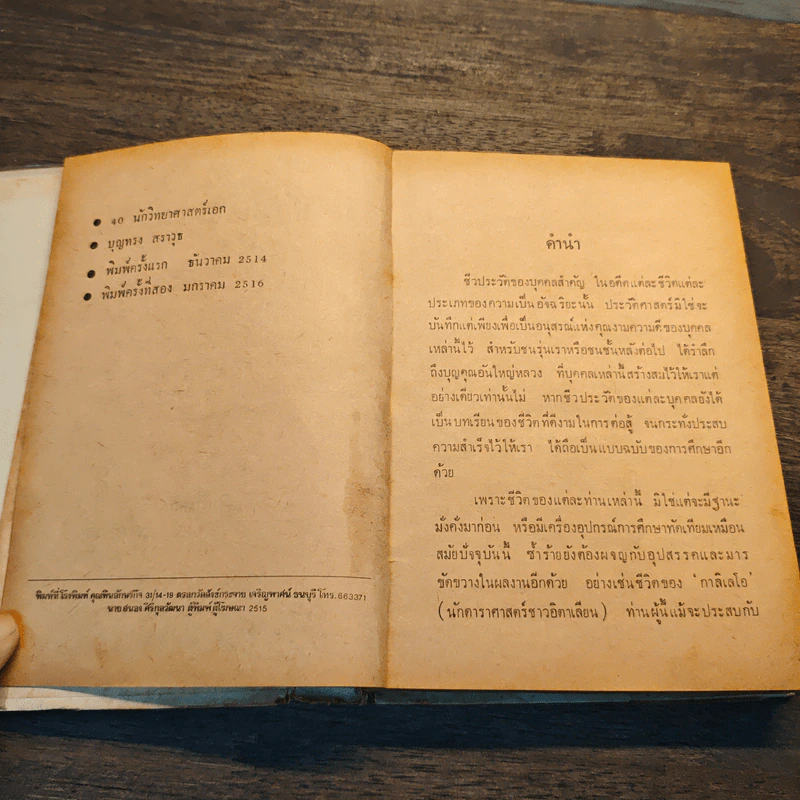 ● ๔๐ นักวิทยาศาสตร์เอก
● บุญทรง สราวุธ
● พิมพ์ครั้งแรก ธันวาคม 2514
● พิมพ์ครั้งที่สอง มกราคม 2516
พิมพ์ที่โรงพิมพ์ คุณพินอักษรกิจ 31/14-19 ตรอกวัดสังข์กระจาย เจริญพาศน์ ธนบุรี โทร. 663371
นายสนอง ศิริกุลวัฒนา ผู้พิมพ์ ผู้โฆษณา 2515
คำนำ
ชีวประวัติของบุคคลสำคัญ ในอดีตแต่ละชีวิตแต่ละ
ประเภทของความเป็นอัจฉริยะนั้น ประวัติศาสตร์มิใช่จะ
บันทึกแต่เพียงเพื่อเป็นอนุสรณ์แห่งคุณงามความดีของบุคคล
เหล่านี้ไว้ สำหรับชนรุ่นเราหรือชนชั้นหลังต่อไป ได้รำลึก
ถึงบุญคุณอันใหญ่หลวง ที่บุคคลเหล่านี้สร้างสมไว้ให้เราแต่
อย่างเดียวเท่านั้นไม่ หากชีวประวัติของแต่ละบุคคลยังได้
เป็นบทเรียนของชีวิตที่ดีงามในการต่อสู้ จนกระทั่งประสบ
ความสำเร็จไว้ให้เรา ได้ถือเป็นแบบฉบับของการศึกษาอีก
ด้วย
เพราะชีวิตของแต่ละท่านเหล่านี้ มิใช่แต่จะมีฐานะ
มั่งคั่งมาก่อน หรือมีเครื่องอุปกรณ์การศึกษาทัดเทียมเหมือน
สมัยปัจจุบันนี้ ซ้ำร้ายยังต้องผจญกับอุปสรรคและมาร
ขัดขวางในผลงานอีกด้วย อย่างเช่นชีวิตของ 'กาลิเลโอ'
(นักดาราศาสตร์ชาวอิตาเลียน) ท่านผู้นี้แม้จะประสบกับ